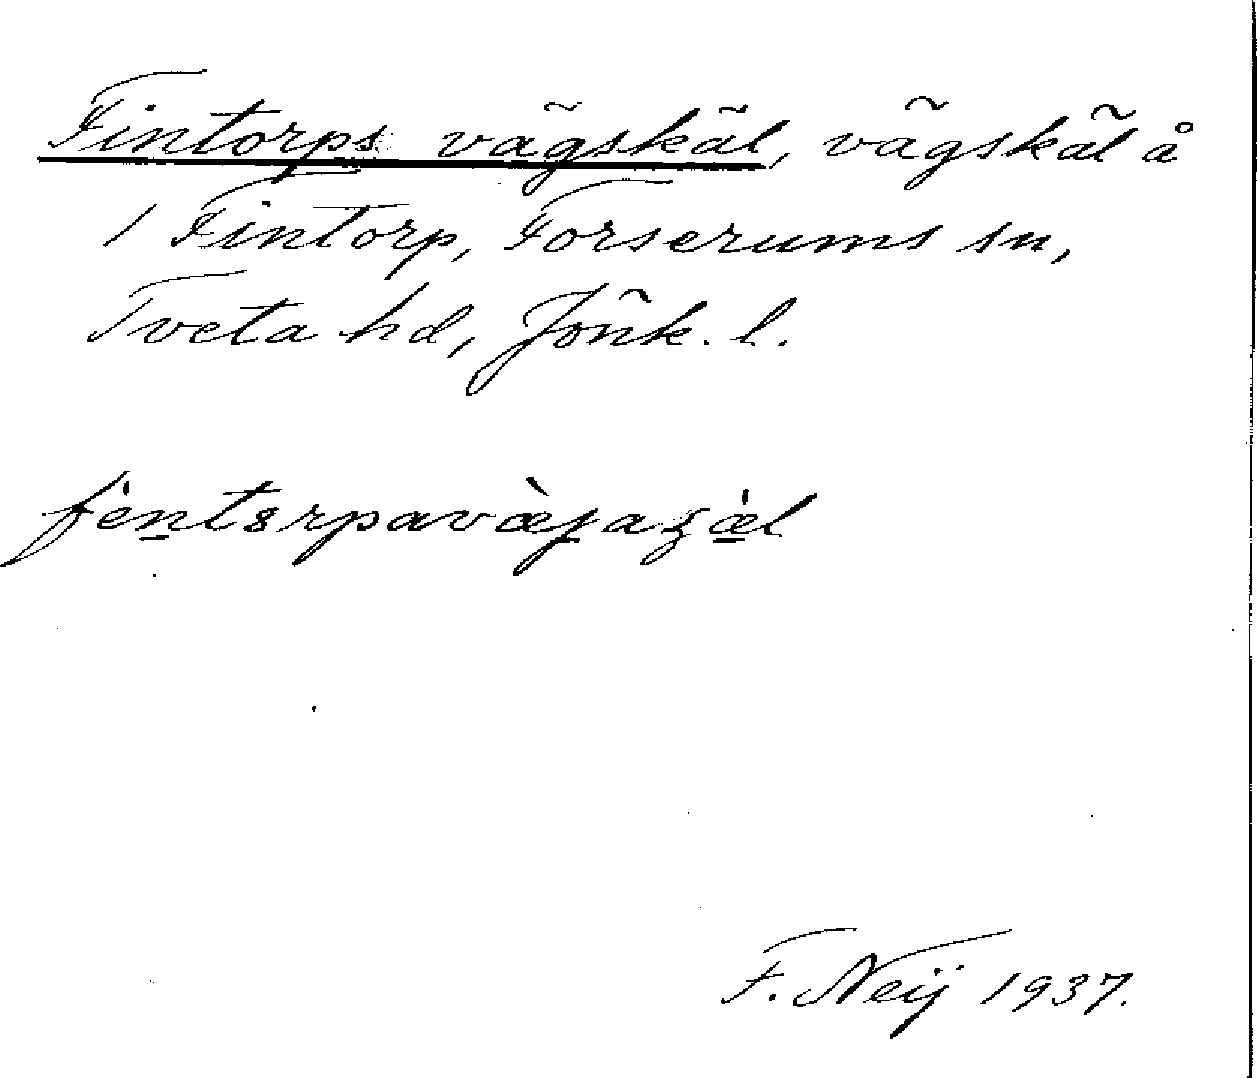 Fintorps vägskäl, vägskäl å
1 Fintorp, Forserums sn,
Tveta hd, Jönk. l.
F. Neij 1937.